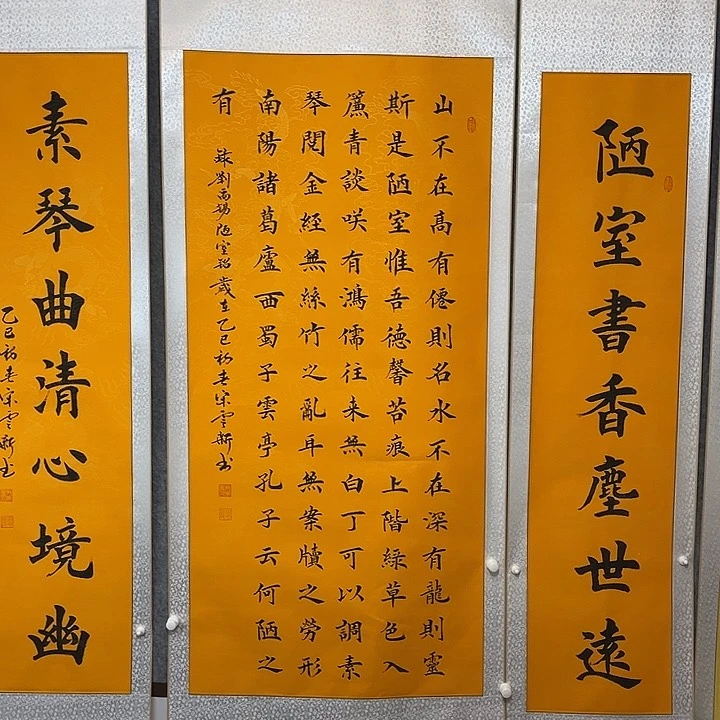 陋室書香塵世遠
山不在髙有僊則名水不在深有龍則靈
斯是陋室惟吾德馨苔痕上階緑草色入
簾青談咲有鴻儒往来無白丁可以調素
琴閱金經無絲竹之亂耳無案牘之勞形
南陽諸葛廬西蜀子雲亭孔子云何陋之
有
録劉禹錫陋室銘歲在乙巳初春宋雲新书
素琴曲清心境幽
乙巳初春宋雲新书